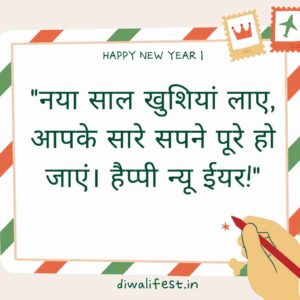 HAPPY NEW YEAR |
"नया साल खुशियां लाए,
आपके सारे सपने पूरे हो
जाएं। हैप्पी न्यू ईयर!"
diwalifest.in